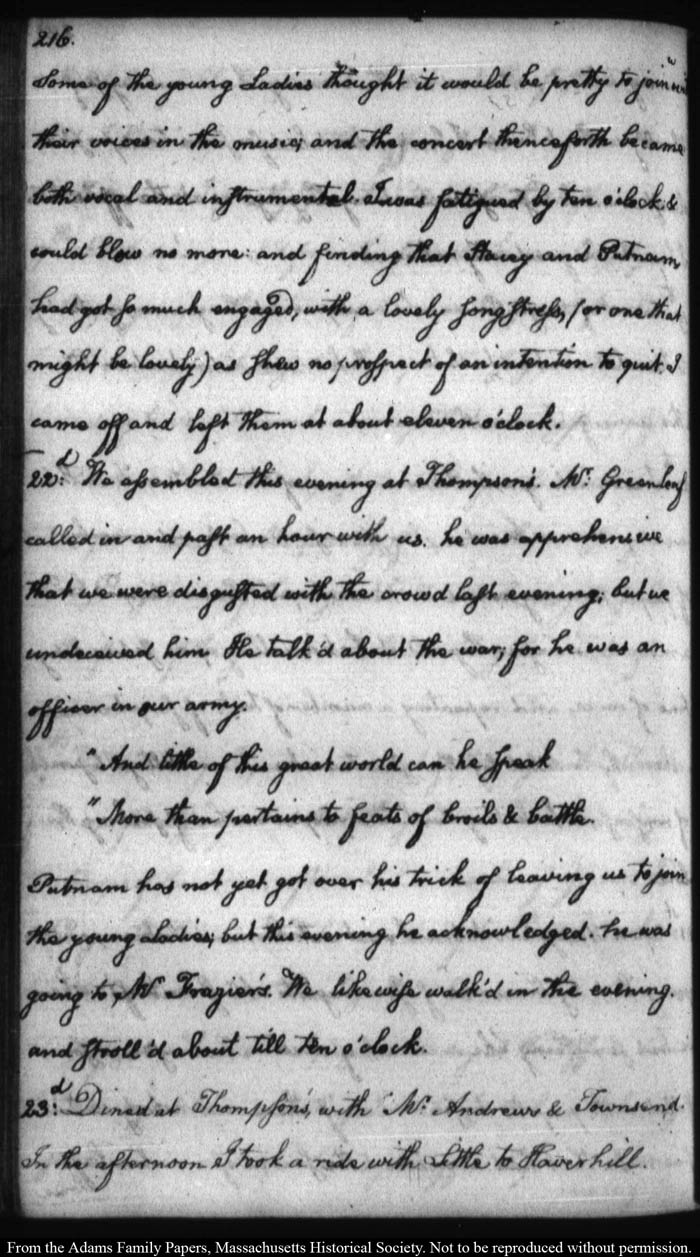 216.
Some of the young Ladies thought it would be pretty to join
their voices in the music; and the concert thenceforth became
both vocal and instrumental. I was fatigued by ten o'clock &
could blow no more: and finding that Stacey and Putnam,
had got so much engaged, with a lovely songstress, (or one that
might be lovely) as shew no prospect of an intention to quit. I
came off and left them at about eleven o'clock.
22d: We assembled this evening at Thompson's. Mr. Greenleaf
called in and past an hour with us. he was apprehensive
that we were disgusted with the crowd last evening; but we
undeceived him. He talk'd about the war; for he was an
officer in our army.
"And little of this great world can he speak
"More than pertains to feats of broils & battle.
Putnam has not yet got over his trick of leaving us to join
the young ladies; but this evening he acknowledged. he was
going to, Mr Frazier's. We likewise walk'd in the evening.
and stroll'd about till ten o'clock.
23d: Dined at Thompson's, with Mr. Andrews & Townsend.
In the afternoon I took a ride with Little to Haverhill.
From the Adams Family Papers, Massachusetts Historical Society. Not to be reproduced without permission.